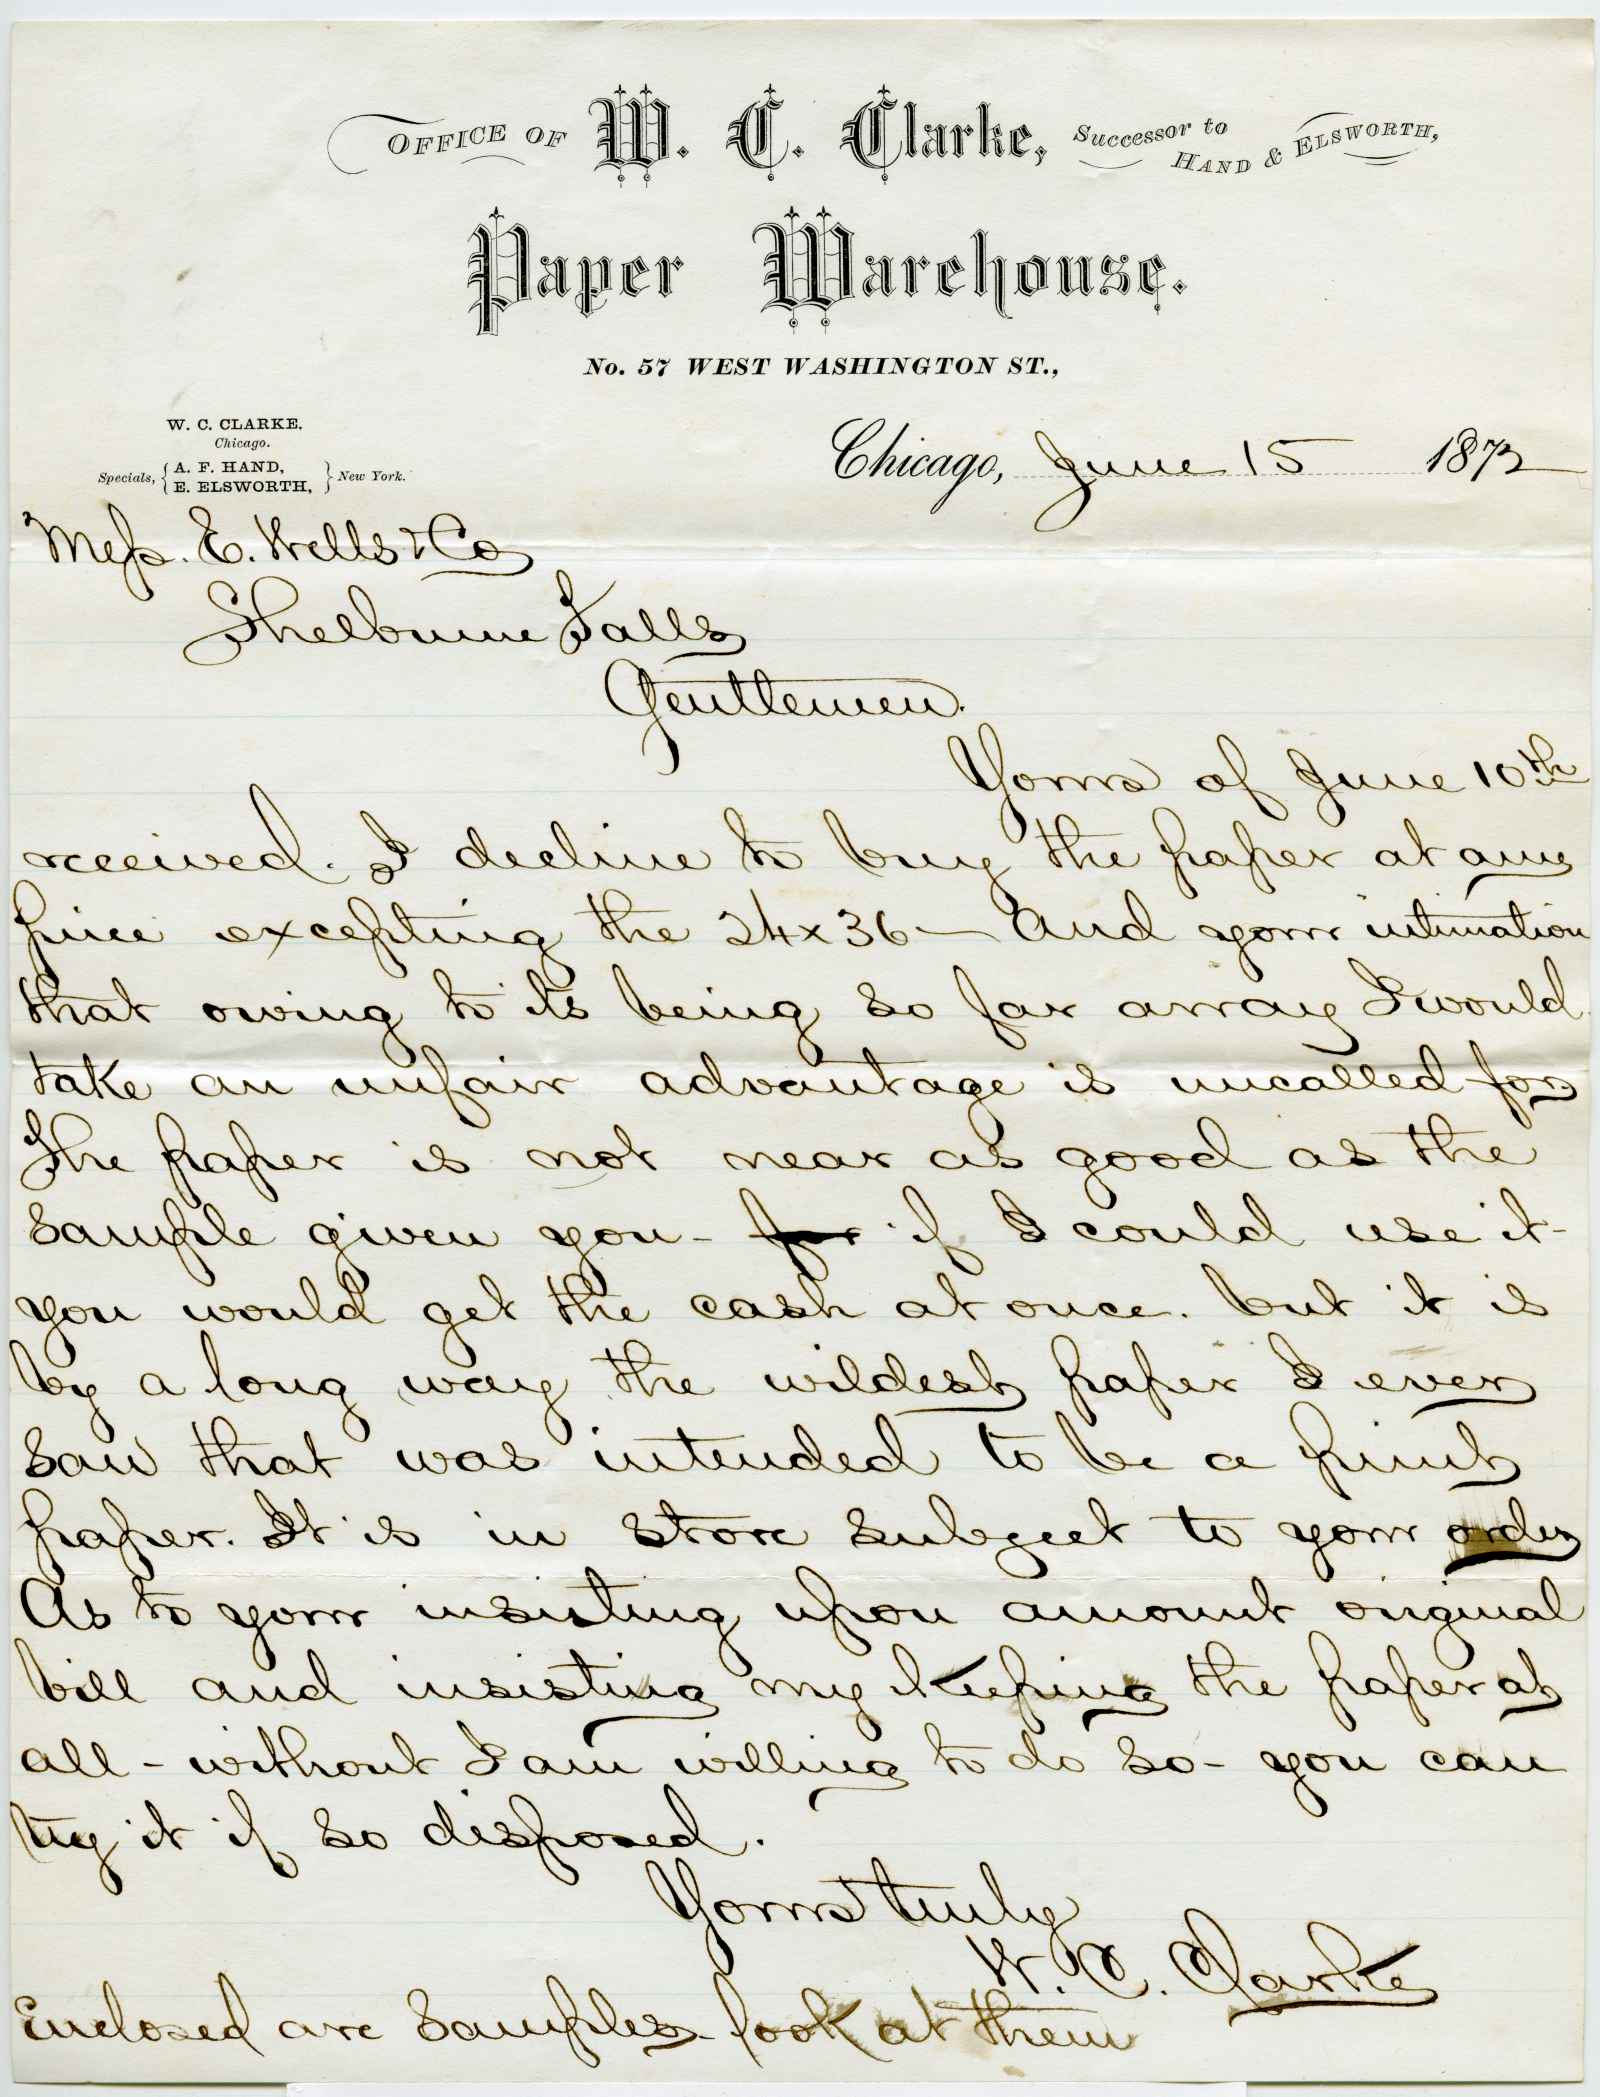 OFFICE OF W. C. Clarke, Successor to HAND & ELSWORTH,
Paper Warehouse.
No. 57 WEST WASHINGTON ST.,
W. C. CLARKE.
Chicago.
Specials, { A. F. HAND, E. ELSWORTH, } New York.
Chicago, June 15 1872
Mess. E. Wells & Co
Shelburne Falls
Gentlemen.
Yours of June 10th
received. I decline to buy the paper at any
price excepting the 24x36 — And your intimation
that owing to its being so far away I would
take an unfair advantage is uncalled for
The paper is not near as good as the
sample given you - for if I could use it -
you would get the cash at once. but it is
by a long way the wildest paper I ever
saw that was intended to be a print
paper. It is in store subject to your order
As to your insisting upon amount original
bill and insisting my keeping the paper at
all - without I am willing to do so - you can
try it if so disposed.
Yours truly
W. C. Clarke
Enclosed are samples - look at them